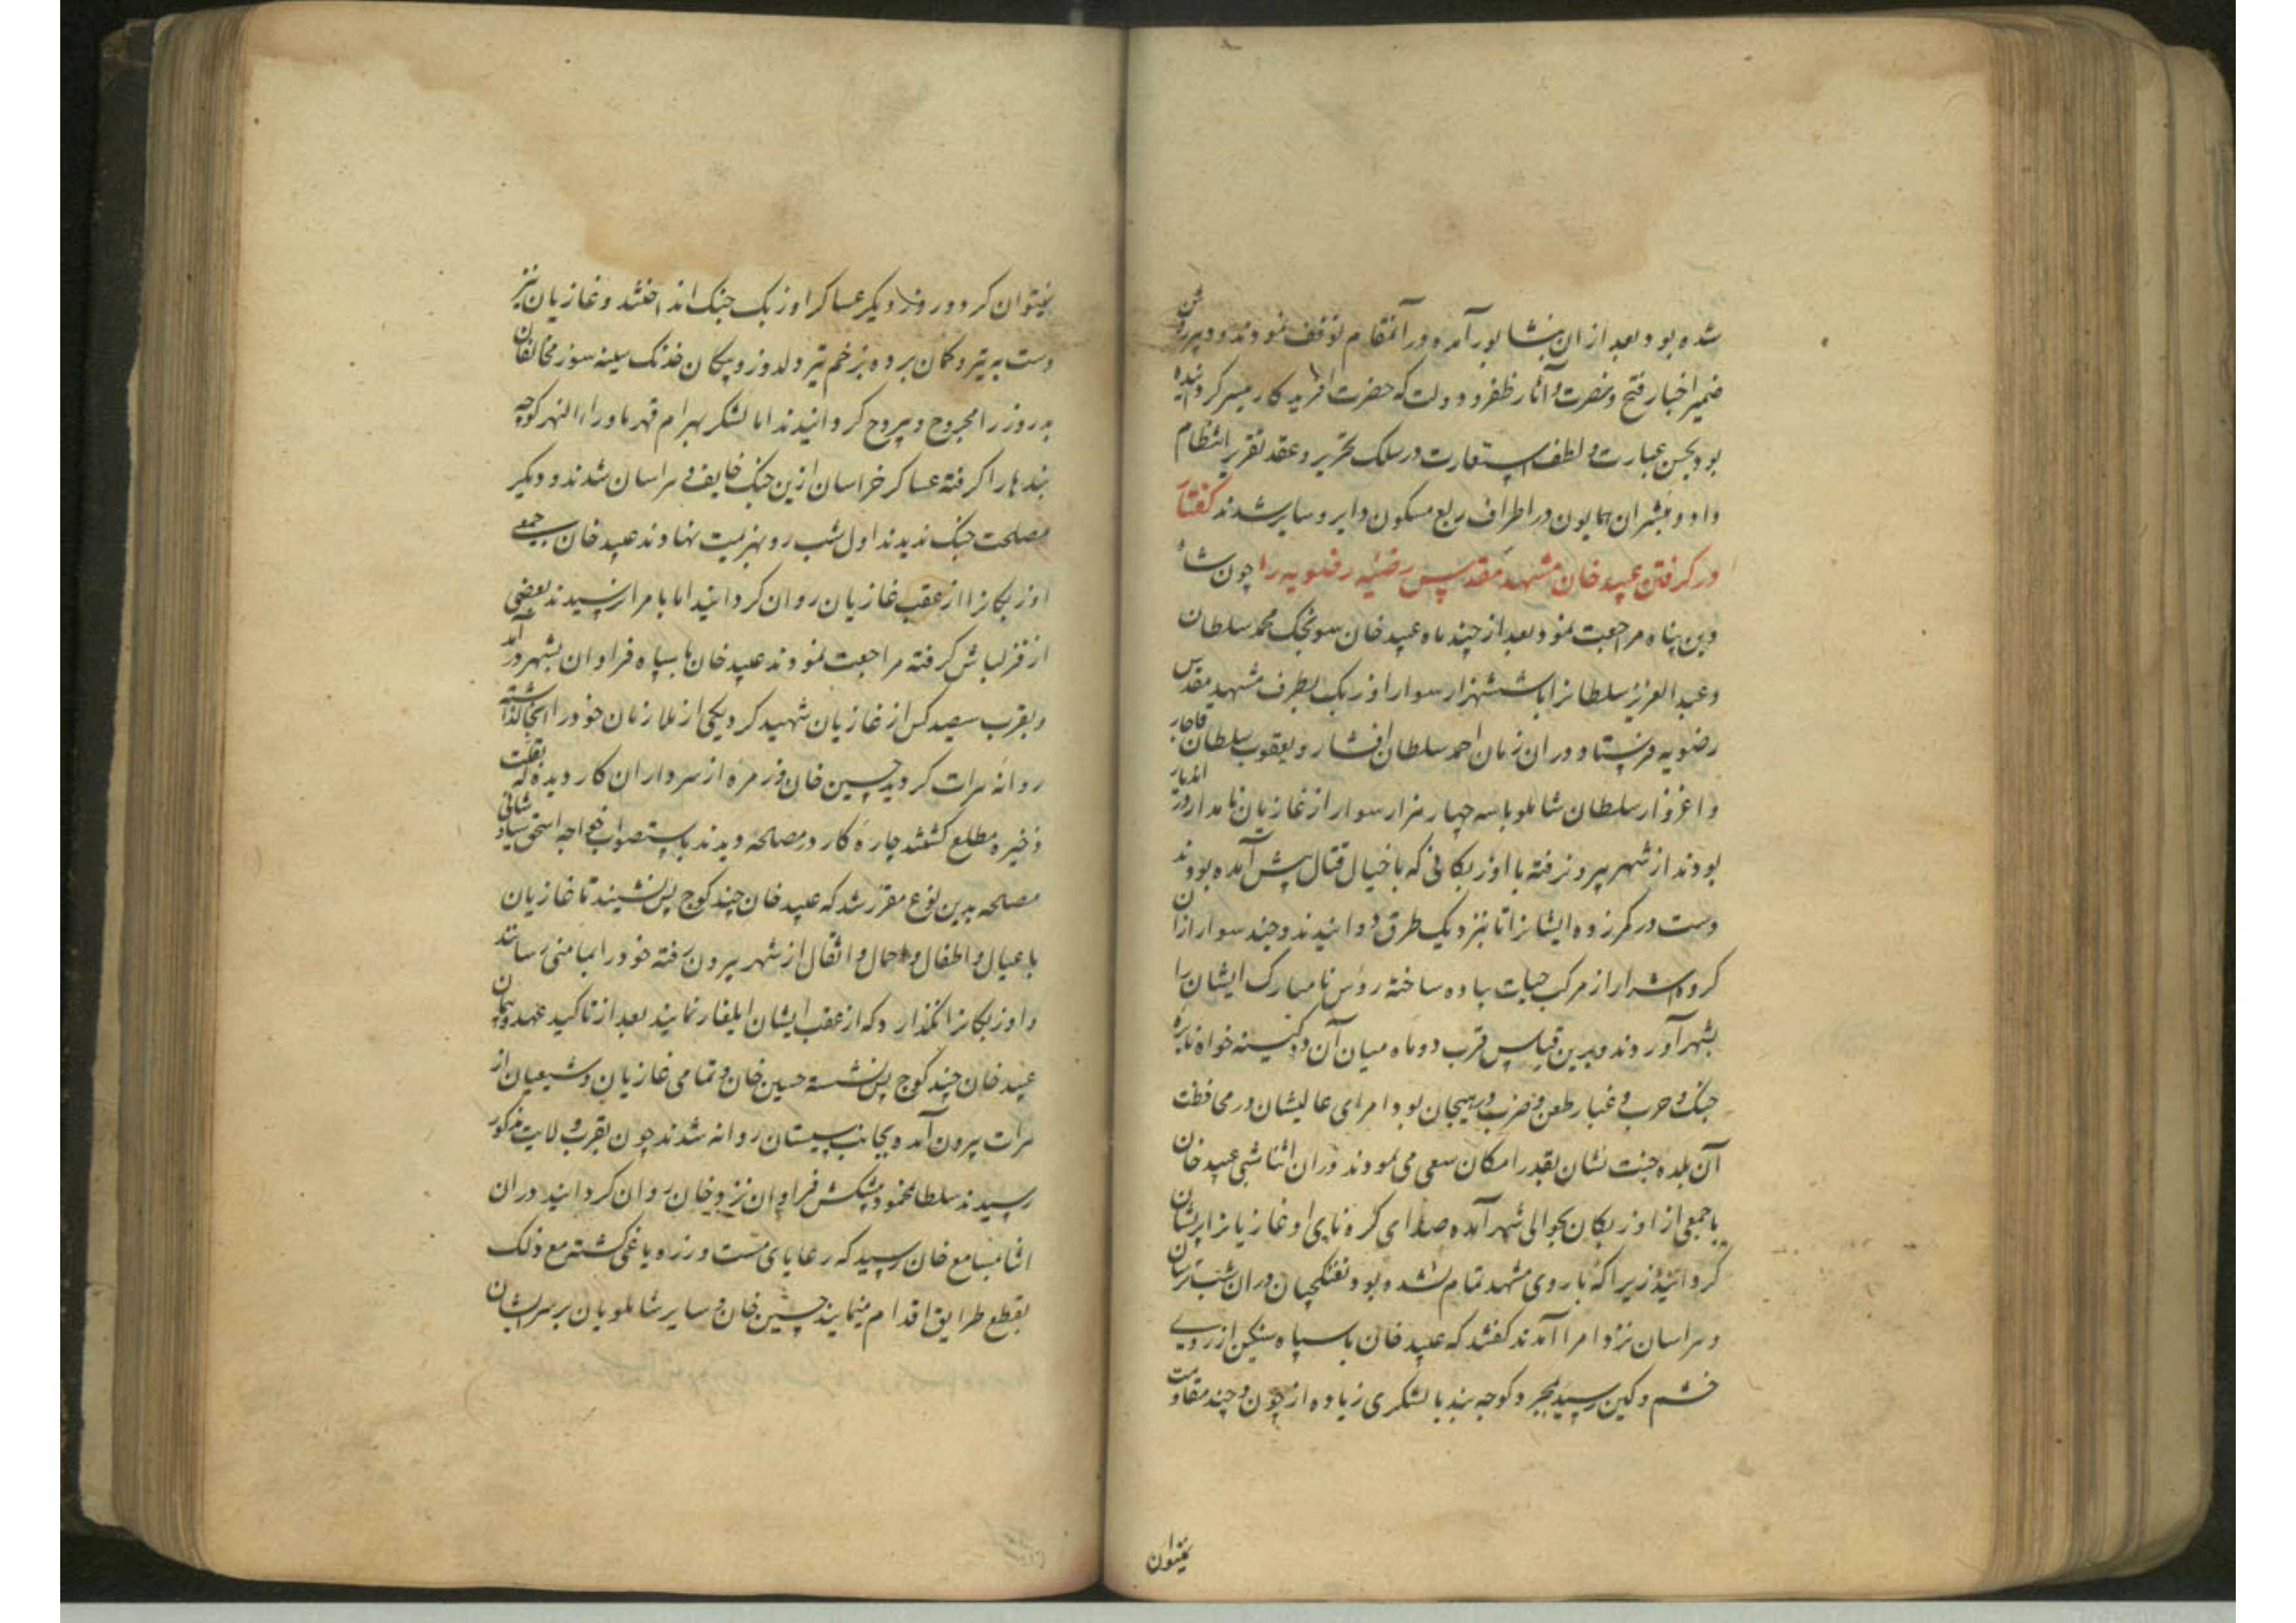 شده بود و بعد از ان بنشابور آمده در آنمقام توقف نمودند و دبیر روشن
ضمیر اخبار فتح و نصرت و آثار ظفر و دولت که حضرت آفریدکار میسر کردانیده
بود بحسن عبارت و لطف استعارت در سلک تحریر و عقد تقریر انتظام
داد و مبشران همایون در اطراف ربع مسکون دایر و سایر شدند کفتار
در کرفتن عبید خان مشهد مقدس رضیه رضویه را چون شاه
دین پناه مراجعت نمود بعد از چند ماه عبید خان سونجک محمد سلطان
و عبد العزیز سلطانرا با ششهزار سوار اوزبک بطرف مشهد مقدس
رضویه فرستاد در ان زمان احمد سلطان افشار و یعقوب سلطان قاجار
و اغزوار سلطان شاملو با سه چهار هزار سوار از غازیان نامدار در اندیار
بودند از شهر بیرون رفته با اوزبکانی که با خیال قتال پیش آمده بودند
دست در کمر زده ایشانرا تا بنزدیک طرق دوانیدند و چند سوار از ان
کروه اشرار از مرکب حیات پیاده ساخته رؤس نامبارک ایشان را
بشهر آوردند و بدین قیاس قرب دو ماه میان آن دو کینه خواه نایره
جنک و حرب و غبار طعن و ضرب در هیجان بود امرای عالیشان در محافظت
آن بلده جنت نشان بقدر امکان سعی می نمودند در ان اثنا شبی عبید خان
با جمعی از اوزبکان بحوالی شهر آمده صدای کره نای او غازیانرا پریشان
کردانید زیرا که باروی مشهد تمام نشده بود تفنکچیان در ان شب ترسان
و هراسان نزد امرا آمدند کفتند که عبید خان با سپاه سنکین از روی
خشم و کین رسید بجر و کوچه بند با لشکری زیاده از چون و چند مقاومت
نمیتوان
نمیتوان کرد و روز دیکر عساکر اوزبک جنک انداختند و غازیان نیز
دست به تیر و کمان برده بزخم تیر دلدوز و پیکان خدنک سینه سوز مخالفان
بد روز را مجروح و بیروح کردانیدند اما لشکر بهرام قهر ماوراء النهر کوچه
بندها را کرفته عساکر خراسان ازین جنک خایف و هراسان شدند و دیکر
مصلحت جنک ندیدند اول شب رو بهزیمت نهادند عبید خان جمعی
اوزبکانرا از عقب غازیان روان کردانید اما بامرا نرسیدند بعضی
از قزلباش کرفته مراجعت نمودند عبید خان با سپاه فراوان بشهر در آمد
و بقرب سیصد کس از غازیان شهید کرد و یکی از ملازمان خود را انجا کذاشته
روانه هرات کردید حسین خان و زمره از سرداران کاردیده که بقلت
ذخیره مطلع کشتند چاره کار در مصالحه دیدند باستصواب خواجه اسحق سیاوشانی
مصالحه بدین نوع مقرر شد که عبید خان چند کوچ پس نشیند تا غازیان
با عیال و اطفال و احمال و اثقال از شهر بیرون رفته خود را بمامنی رسانند
و اوزبکانرا نکذارد که از عقب ایشان ایلغار نمایند بعد از تاکید عهد و پیمان
عبید خان چند کوچ پس نشسته حسین خان و تمامی غازیان و شیعیان از
هرات بیرون آمده بجانب سیستان روانه شدند چون بقرب ولایت مذکور
رسیدند سلطانمحمود پیشکش فراوان نزد خان روان کردانید در ان
اثنا بمسامع خان رسید که رعایای مست و رزه یاغی کشته مع ذلک
بقطع طرایق اقدام مینمایند حسین خان و سایر شاملویان بر سر ایشان